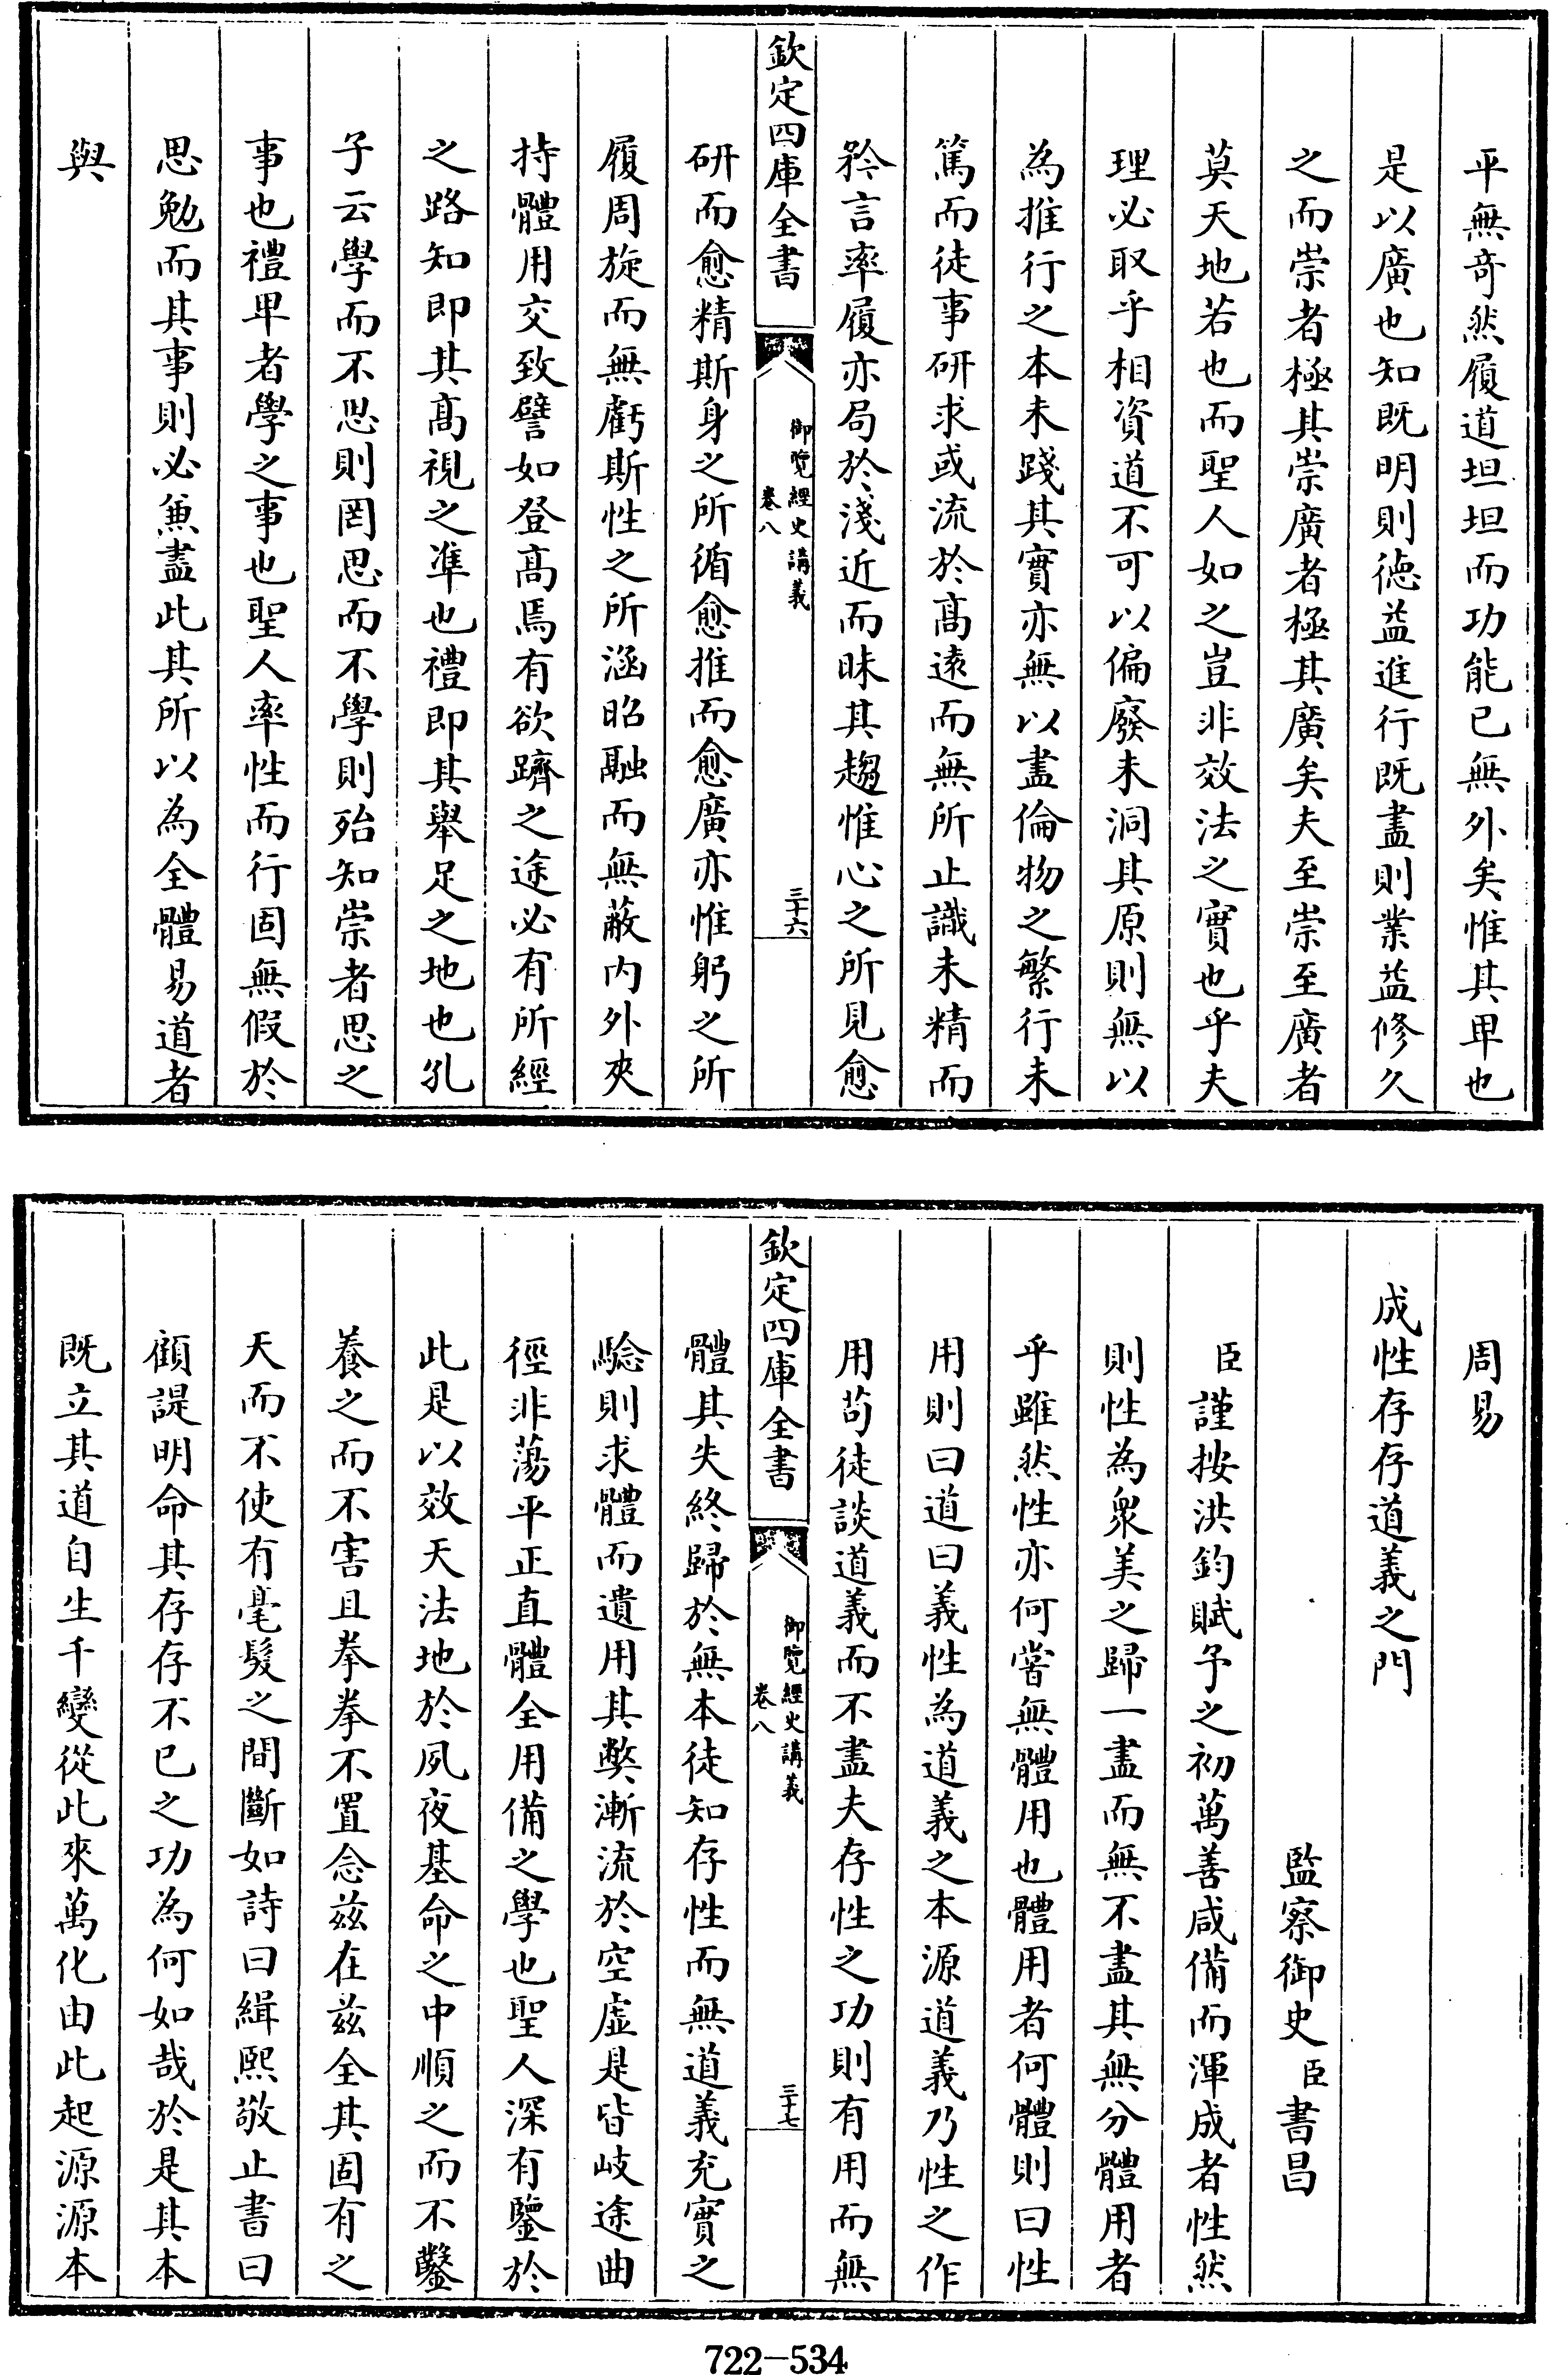 平無奇然履道坦坦而功能已無外矣惟其卑也
是以廣也知既明則德益進行既盡則業益修久
之而崇者極其崇廣者極其廣矣夫至崇至廣者
莫天地若也而聖人如之豈非效法之實也乎夫
理必取乎相資道不可以偏廢未洞其原則無以
為推行之本未踐其實亦無以盡倫物之繁行未
篤而徒事研求或流於髙逺而無所止識未精而
矜言率履亦局於淺近而昧其趨惟心之所見愈
欽定四庫全書
御覽經史講義
卷八
三十六
研而愈精斯身之所循愈推而愈廣亦惟躬之所
履周旋而無虧斯性之所涵昭融而無蔽内外夾
持體用交致譬如登髙焉有欲躋之途必有所經
之路知即其髙視之凖也禮即其舉足之地也孔
子云學而不思則罔思而不學則殆知崇者思之
事也禮卑者學之事也聖人率性而行固無假於
思勉而其事則必兼盡此其所以為全體易道者
與
周易
成性存存道義之門
監察御史臣書昌
臣謹按洪鈞賦予之初萬善咸備而渾成者性然
則性為衆美之歸一盡而無不盡其無分體用者
乎雖然性亦何嘗無體用也體用者何體則曰性
用則曰道曰義性為道義之本源道義乃性之作
用苟徒談道義而不盡夫存性之功則有用而無
欽定四庫全書
御覽經史講義
卷八
三十七
體其失終歸於無本徒知存性而無道義充實之
驗則求體而遺用其弊漸流於空虛是皆岐途曲
徑非蕩平正直體全用備之學也聖人深有鑒於
此是以效天法地於夙夜基命之中順之而不鑿
養之而不害且拳拳不置念兹在兹全其固有之
天而不使有毫髮之間斷如詩曰緝熙敬止書曰
顧諟明命其存存不已之功為何如哉於是其本
既立其道自生千變從此來萬化由此起源源本
722—534